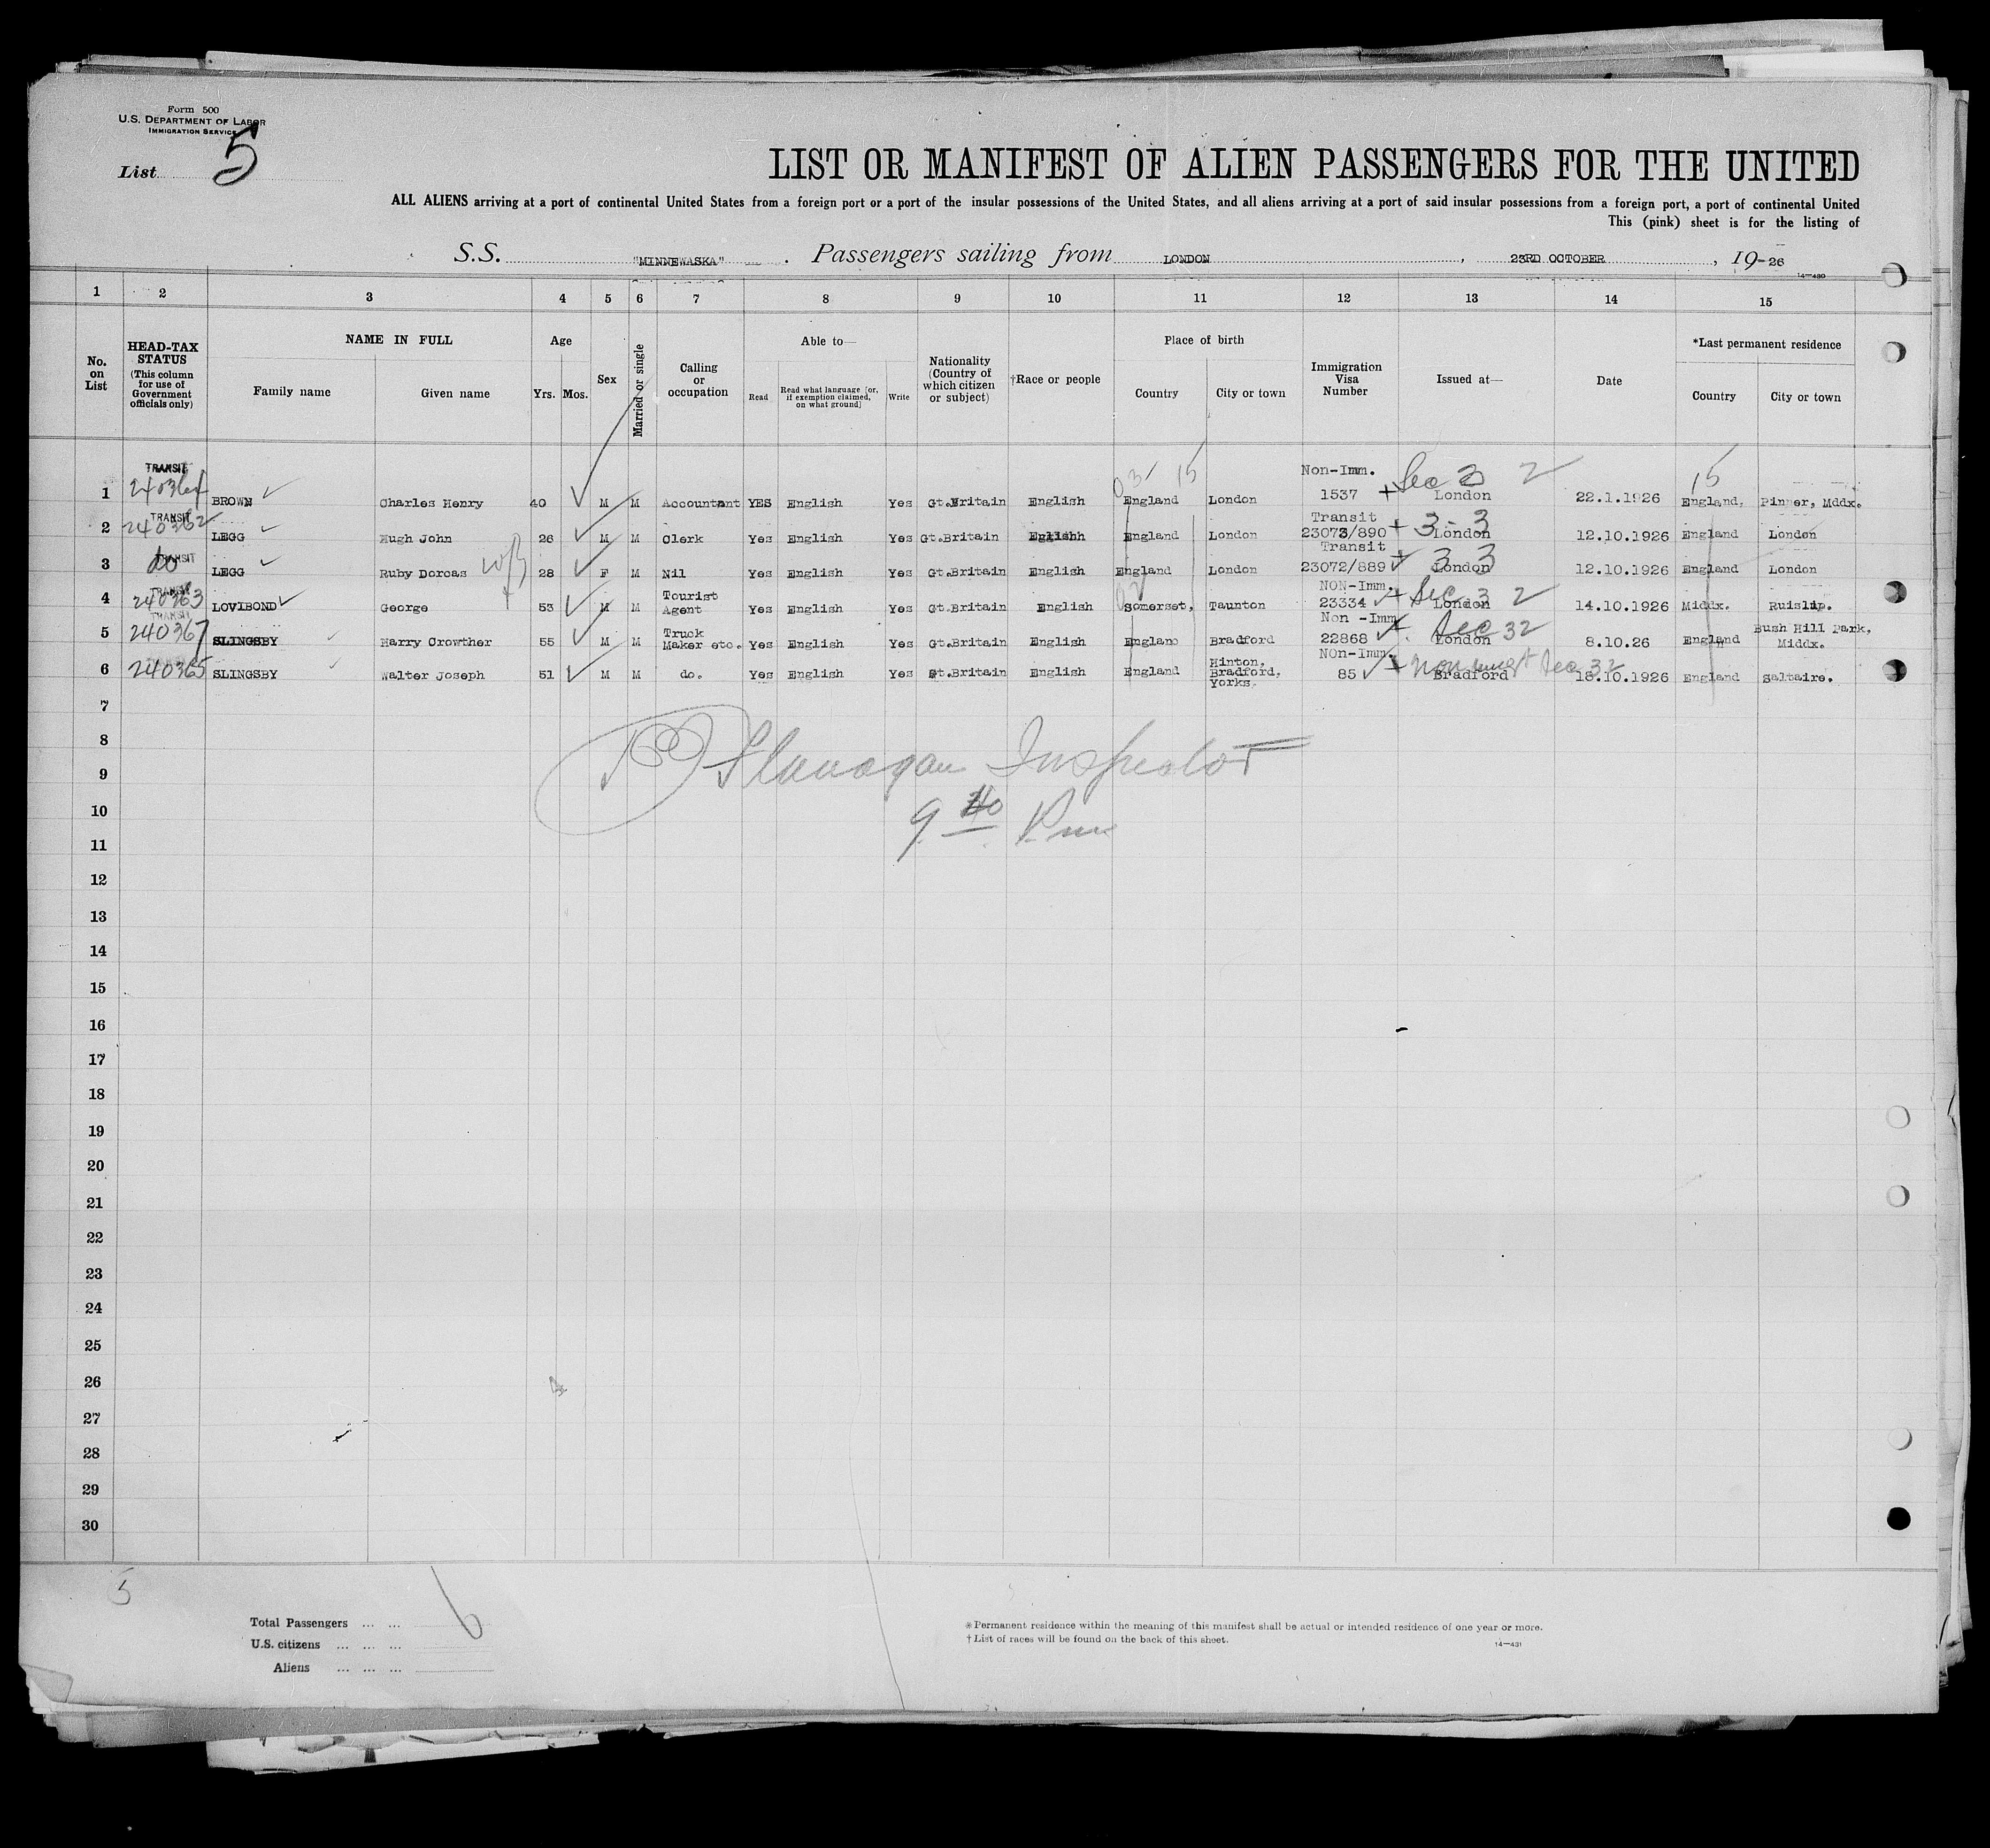 Form 500
U.S. DEPARTMENT OF LABOR
IMMIGRATION SERVICE
List 5
LIST OR MANIFEST OF ALIEN PASSENGERS FOR THE UNITED
ALL ALIENS arriving at a port of continental United States from a foreign port or a port of the insular possessions of the United States, and all aliens arriving at a port of said insular possessions from a foreign port, a port of continental United
This (pink) sheet is for the listing of
S.S. "MINNEWASKA" Passengers sailing from LONDON, 23RD OCTOBER, 19-26
14—430
1 2 3 4 5 6 7 8 9 10 11 12 13 14 15
No. on List
HEAD-TAX STATUS (This column for use of Government officials only)
NAME IN FULL Family name Given name
Age Yrs. Mos.
Sex
Married or single
Calling or occupation
Able to— Read Read what language [or, if exemption claimed, on what ground] Write
Nationality (Country of which citizen or subject)
†Race or people
Place of birth Country City or town
Immigration Visa Number
Issued at—
Date
*Last permanent residence Country City or town
03 15 15
TRANSIT Non-Imm. Sec 3 2
1 240364 BROWN Charles Henry 40 M M Accountant YES English Yes Gt.Britain English England London 1537 London 22.1.1926 England, Pinner, Mddx.
TRANSIT Transit 3-3
2 240362 LEGG Hugh John 26 M M Clerk Yes English Yes Gt.Britain English England London 23073/890 London 12.10.1926 England London
TRANSIT Transit 3 3
3 do LEGG Ruby Dorcas wf 28 F M Nil Yes English Yes Gt.Britain English England London 23072/889 London 12.10.1926 England London
TRANSIT Tourist NON-Imm. Sec 3 2
4 240363 LOVIBOND George 53 M M Agent Yes English Yes Gt.Britain English Somerset, Taunton 23334 London 14.10.1926 Middx. Ruislip.
TRANSIT Truck Non-Imm Sec 32 Bush Hill Park,
5 240367 SLINGSBY Harry Crowther 55 M M Maker etc. Yes English Yes Gt.Britain English England Bradford 22868 London 8.10.26 England Middx.
Hinton, Non-Imm. Sec 32
6 240365 SLINGSBY Walter Joseph 51 M M do. Yes English Yes Gt.Britain English England Bradford, Yorks. 85 Bradford 18.10.1926 England Saltaire.
7
8 Flanagan Inspector
9
10 9 Pm
11
12
13
14
15
16
17
18
19
20
21
22
23
24
25
26
27
28
29
30
5
Total Passengers ... ... 6
U.S. citizens ... ... ...
Aliens ... ... ...
*Permanent residence within the meaning of this manifest shall be actual or intended residence of one year or more.
†List of races will be found on the back of this sheet.
14—431